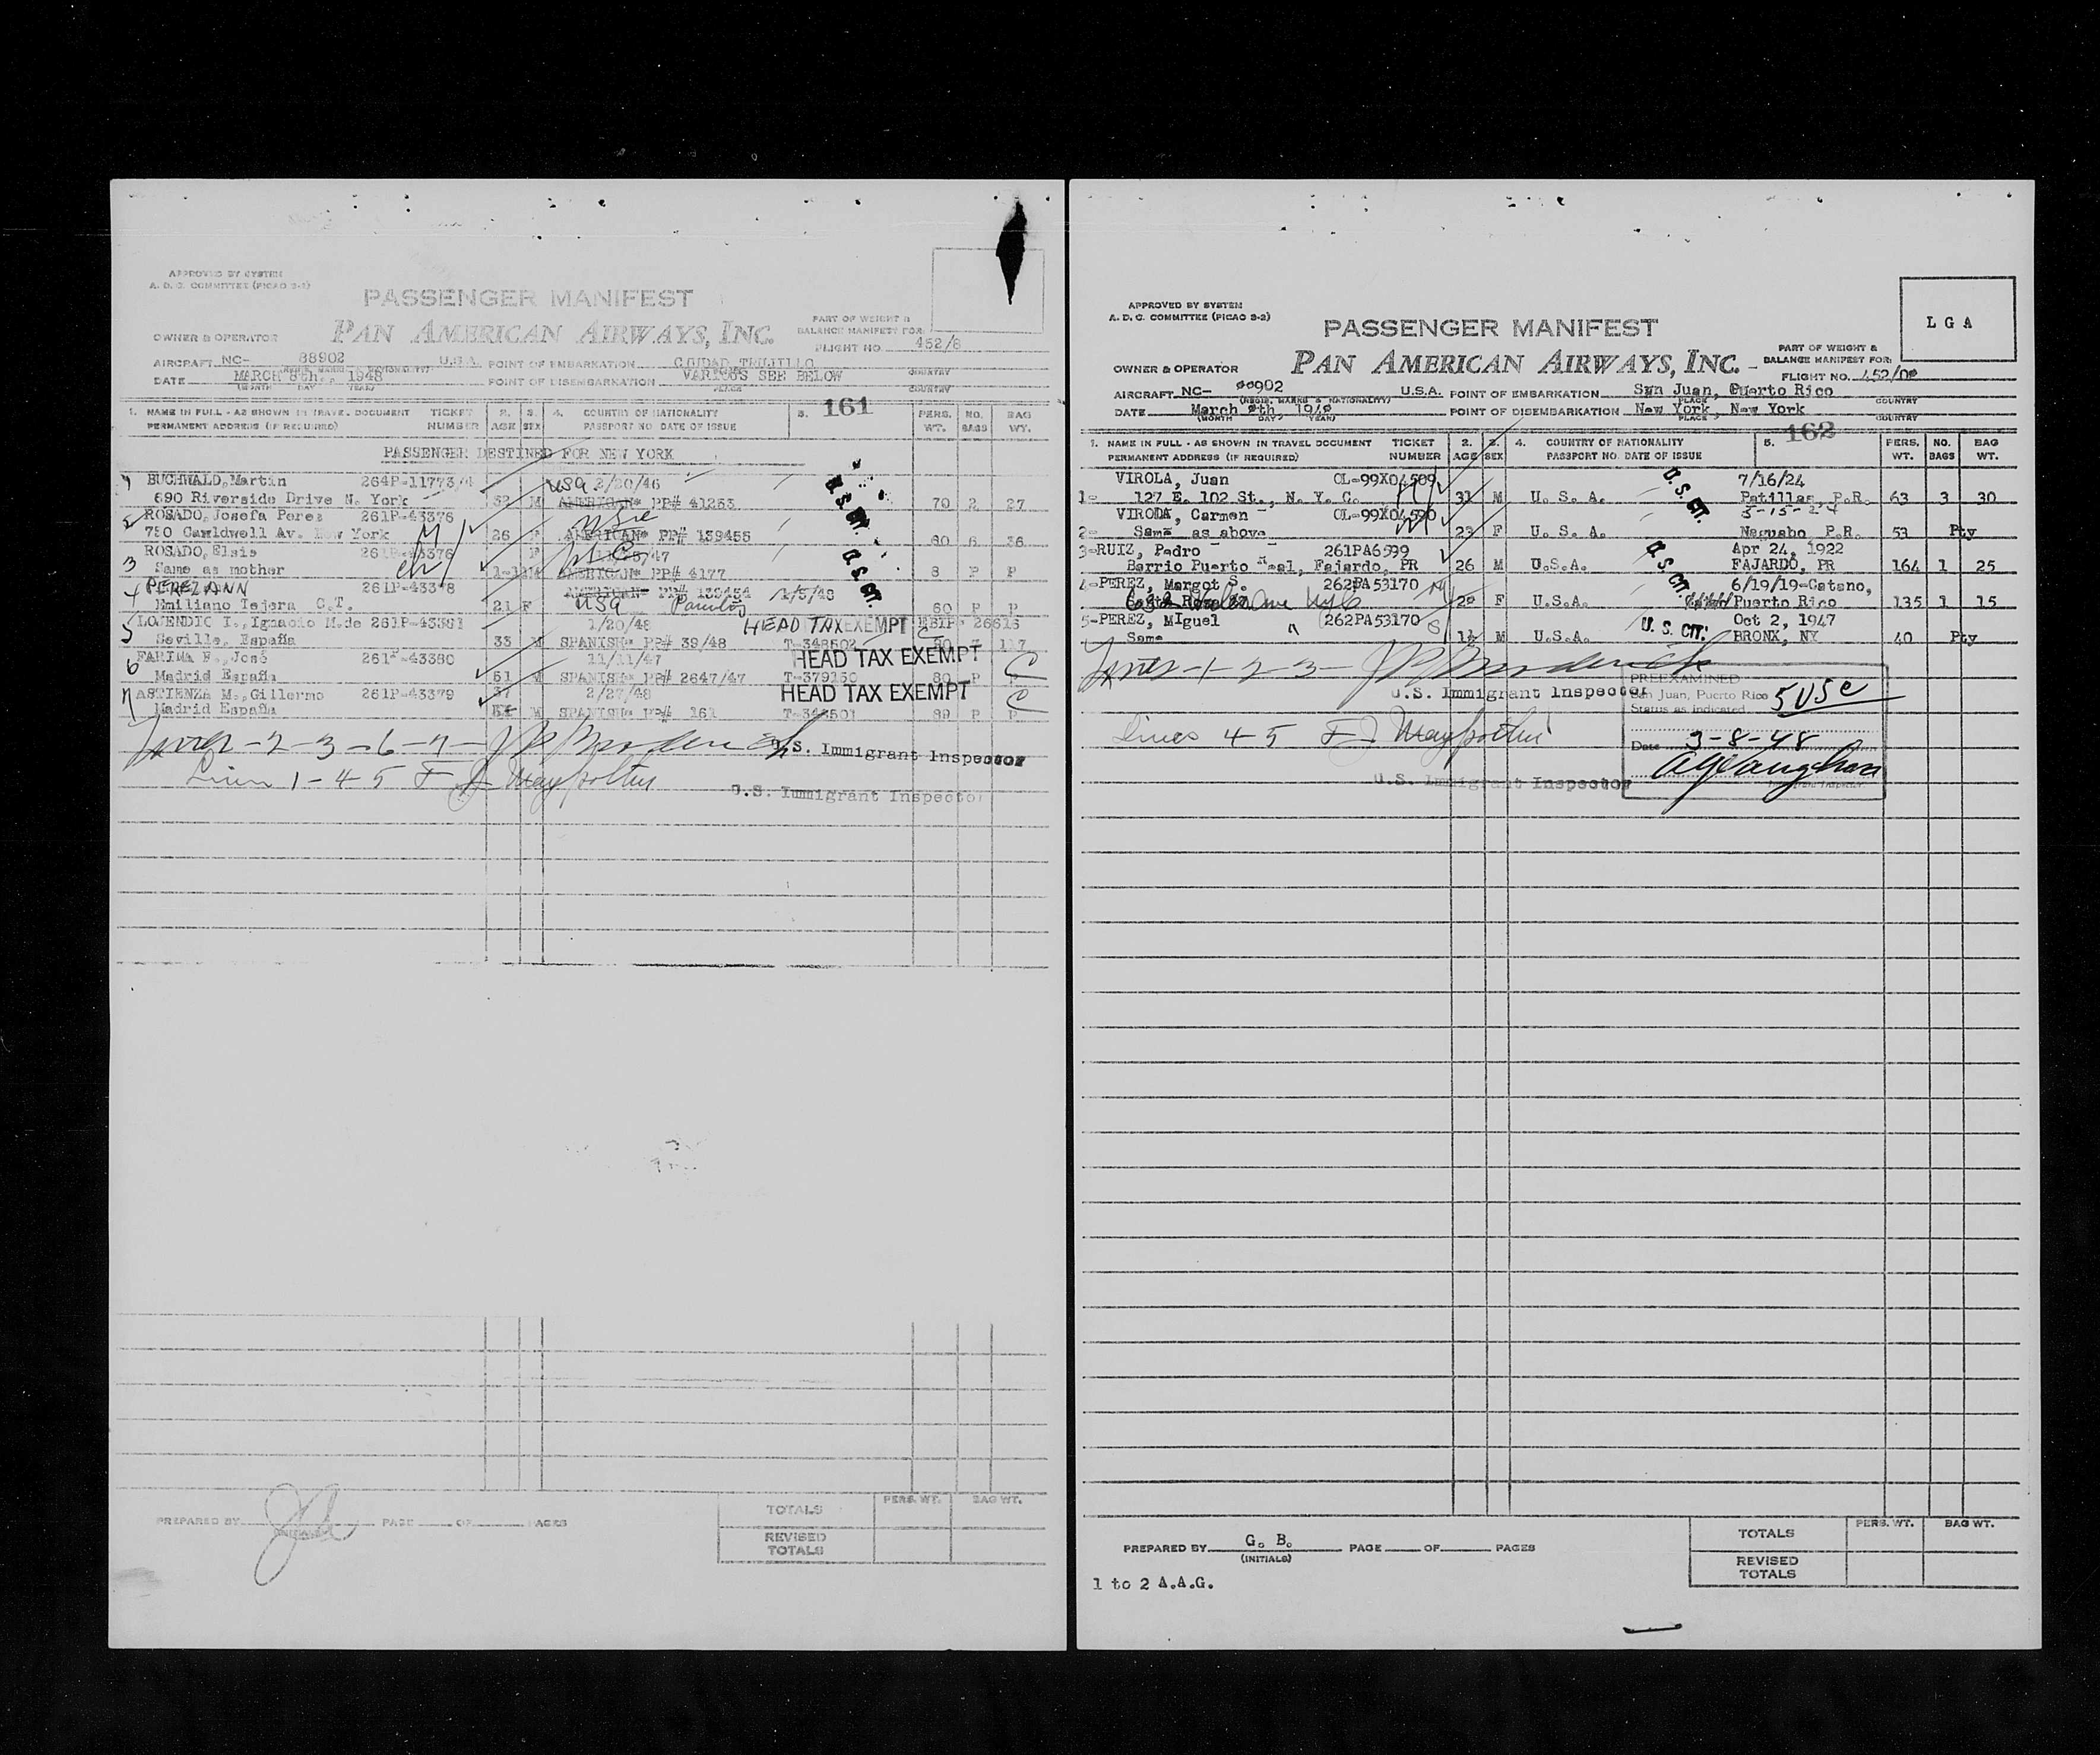 APPROVED BY SYSTEM
A. D. C. COMMITTEE (PICAO 2-2)
PASSENGER MANIFEST
OWNER & OPERATOR PAN AMERICAN AIRWAYS, INC.
PART OF WEIGHT &
BALANCE MANIFEST FOR:
FLIGHT NO. 452/8
AIRCRAFT NC- 88902 U.S.A. POINT OF EMBARKATION CIUDAD TRUJILLO
(REGIS. MARKS & NATIONALITY) PLACE COUNTRY
DATE MARCH 8th., 1948 POINT OF DISEMBARKATION VARIOUS SEE BELOW
(MONTH DAY YEAR) PLACE COUNTRY
161
1. NAME IN FULL - AS SHOWN IN TRAVEL DOCUMENT TICKET 2. 3. 4. COUNTRY OF NATIONALITY 5. PERS. NO. BAG
PERMANENT ADDRESS (IF REQUIRED) NUMBER AGE SEX PASSPORT NO DATE OF ISSUE WT. BAGS WT.
PASSENGER DESTINED FOR NEW YORK
1 BUCHWALD, Martin 264P-11773 USA 2/20/46
690 Riverside Drive N. York 52 M AMERICAN* PP# 41253 70 2 27
U.S. CIT.
2 ROSADO, Josefa Perez 261P-43376 USC
750 Cawldwell Av. New York 26 F AMERICAN* PP# 139455 60 6 36
3 ROSADO, Elsie 261P-43376 F USC
Same as mother AMERICAN* PP# 4177 8 P P
U.S. CIT.
4 PEREZ ANN 261P-43378 AMERICAN* PP# 139454 1/5/48
Emiliano Tejera C.T. 21 F USA 60 P P
5 LOJENDIO I., Ignacio M.de 261P-43381 1/20/48 HEAD TAX EXEMPT 26616
Seville, España 33 M SPANISH* PP# 39/48 T-348502 80 7 117
6 FARINA F., José 261P-43380 11/11/47 HEAD TAX EXEMPT C
Madrid España 51 M SPANISH* PP# 2647/47 T-379150 80 P P
7 ASTIENZA M., Gillermo 261P-43379 37 2/27/48 HEAD TAX EXEMPT C
Madrid España M SPANISH* PP# 161 T-348501 89 P P
Lines - 2 - 3 - 6 - 7 -
U.S. Immigrant Inspector
Lines 1 - 4 5
U.S. Immigrant Inspector
PREPARED BY PAGE OF PAGES
(INITIALS)
PERS. WT. BAG WT.
TOTALS
REVISED
TOTALS
APPROVED BY SYSTEM
A. D. C. COMMITTEE (PICAO 2-2)
LGA
PASSENGER MANIFEST
OWNER & OPERATOR PAN AMERICAN AIRWAYS, INC.
PART OF WEIGHT &
BALANCE MANIFEST FOR:
FLIGHT NO. 452/08
AIRCRAFT NC- 88902 U.S.A. POINT OF EMBARKATION San Juan, Puerto Rico
(REGIS. MARKS & NATIONALITY) PLACE COUNTRY
DATE March 8th, 1948 POINT OF DISEMBARKATION New York, New York
(MONTH DAY YEAR) PLACE COUNTRY
162
1. NAME IN FULL - AS SHOWN IN TRAVEL DOCUMENT TICKET 2. 3. 4. COUNTRY OF NATIONALITY 5. PERS. NO. BAG
PERMANENT ADDRESS (IF REQUIRED) NUMBER AGE SEX PASSPORT NO. DATE OF ISSUE WT. BAGS WT.
VIROLA, Juan OL-99X04589 7/16/24
1- 127 E. 102 St., N. Y. C. 31 M U. S. A. Patillas, P.R. 63 3 30
U.S. CIT.
VIROLA, Carmen OL-99X04590 5-15-24
2- Same as above 23 F U. S. A. Naguabo P.R. 53 Pty
3-RUIZ, Pedro 261PA6599 Apr 24, 1922
Barrio Puerto Real, Fajardo, PR 26 M U.S.A. FAJARDO, PR 164 1 25
U.S. CIT.
4-PEREZ, Margot S. 262PA53170 6/19/19-Catano,
28 F U.S.A. Puerto Rico 135 1 15
5-PEREZ, MIguel " 262PA53170 Oct 2, 1947
Same 1½ M U.S.A. U. S. CIT. BRONX, NY 40 Pty
Lines - 1 - 2 - 3 -
U.S. Immigrant Inspector
PREEXAMINED
San Juan, Puerto Rico
Status as indicated 5 USC
Date 3-8-48
Immigrant Inspector
Lines 4 5
U.S. Immigrant Inspector
PREPARED BY G. B. PAGE OF PAGES
(INITIALS)
PERS. WT. BAG WT.
TOTALS
REVISED
TOTALS
1 to 2 A.A.G.